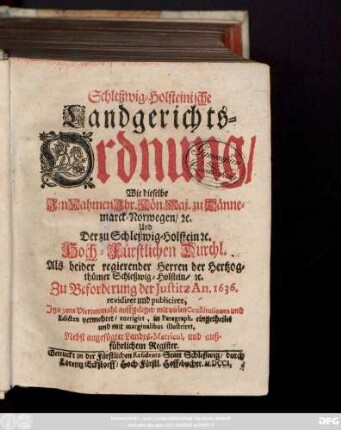 Schleßwig-Holsteinische
Landgerichts-
Ordnung/
Wie dieselbe
Im Nahmen Ihr. Kön. Maj. zu Dänne-
marck-Norwegen/ ꝛc.
Und
Der zu Schleßwig-Holstein ꝛc.
Hoch-Fürstlichen Durchl.
Als beider regierender Herren der Hertzog-
thümer Schleßwig-Holstein/ ꝛc.
Zu Beforderung der Justitz An. 1636.
revidiret und publiciret,
Itzo zum Vierten mahl auffgeleget/ mit vielen Constitutionen und
Edicten vermehret/ corrigirt, in Paragraph. eingetheilet
und mit marginalibus illustriret,
Nebst angefügter Landes-Matricul, und auß-
führlichem Register.
Gedruckt in der Fürstlichen Residentz-Stadt Schleßwig/ durch
Hoch-Fürstl. Hoffbuchdr. M.DCCI.